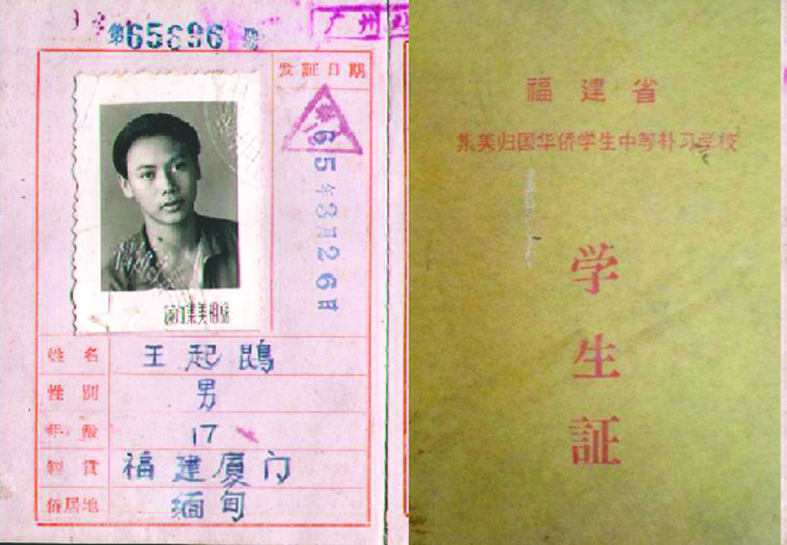 第65696号
广州
发証日期
65年3月26日
厦门集美相馆
姓名 王起鵾
性别 男
年龄 17
籍貫 福建厦门
侨居地 缅甸
福建省
集美归国华侨学生中等补习学校
学生証